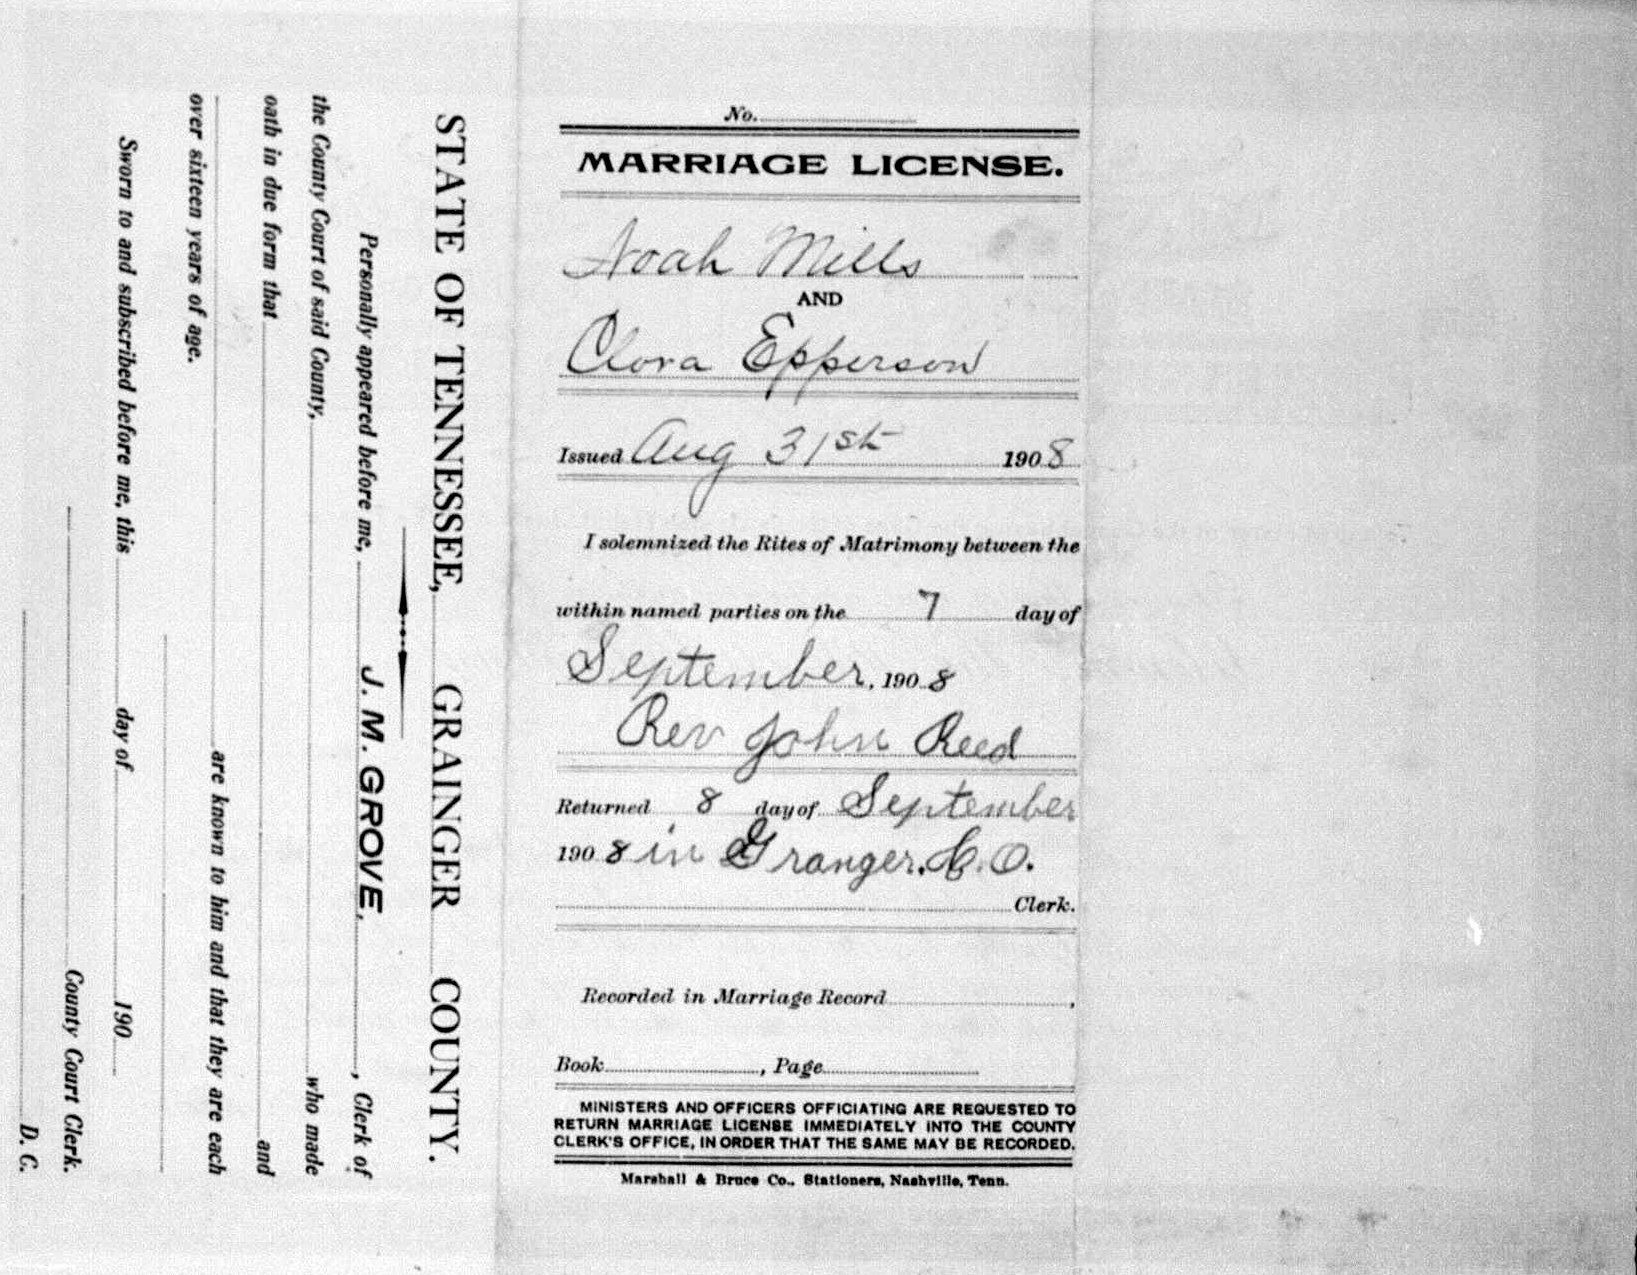 No.
MARRIAGE LICENSE.
Noah Mills
AND
Clora Epperson
Issued Aug 31st 1908
I solemnized the Rites of Matrimony between the
within named parties on the 7 day of
September, 1908
Rev John Reed
Returned 8 day of September
1908 in Granger. C.O.
Clerk.
Recorded in Marriage Record ,
Book , Page
MINISTERS AND OFFICERS OFFICIATING ARE REQUESTED TO
RETURN MARRIAGE LICENSE IMMEDIATELY INTO THE COUNTY
CLERK'S OFFICE, IN ORDER THAT THE SAME MAY BE RECORDED.
Marshall & Bruce Co., Stationers, Nashville, Tenn.
STATE OF TENNESSEE, GRAINGER COUNTY.
Personally appeared before me, J. M. GROVE, , Clerk of
the County Court of said County, who made
oath in due form that and
are known to him and that they are each
over sixteen years of age.
Sworn to and subscribed before me, this day of 190
County Court Clerk.
D. C.